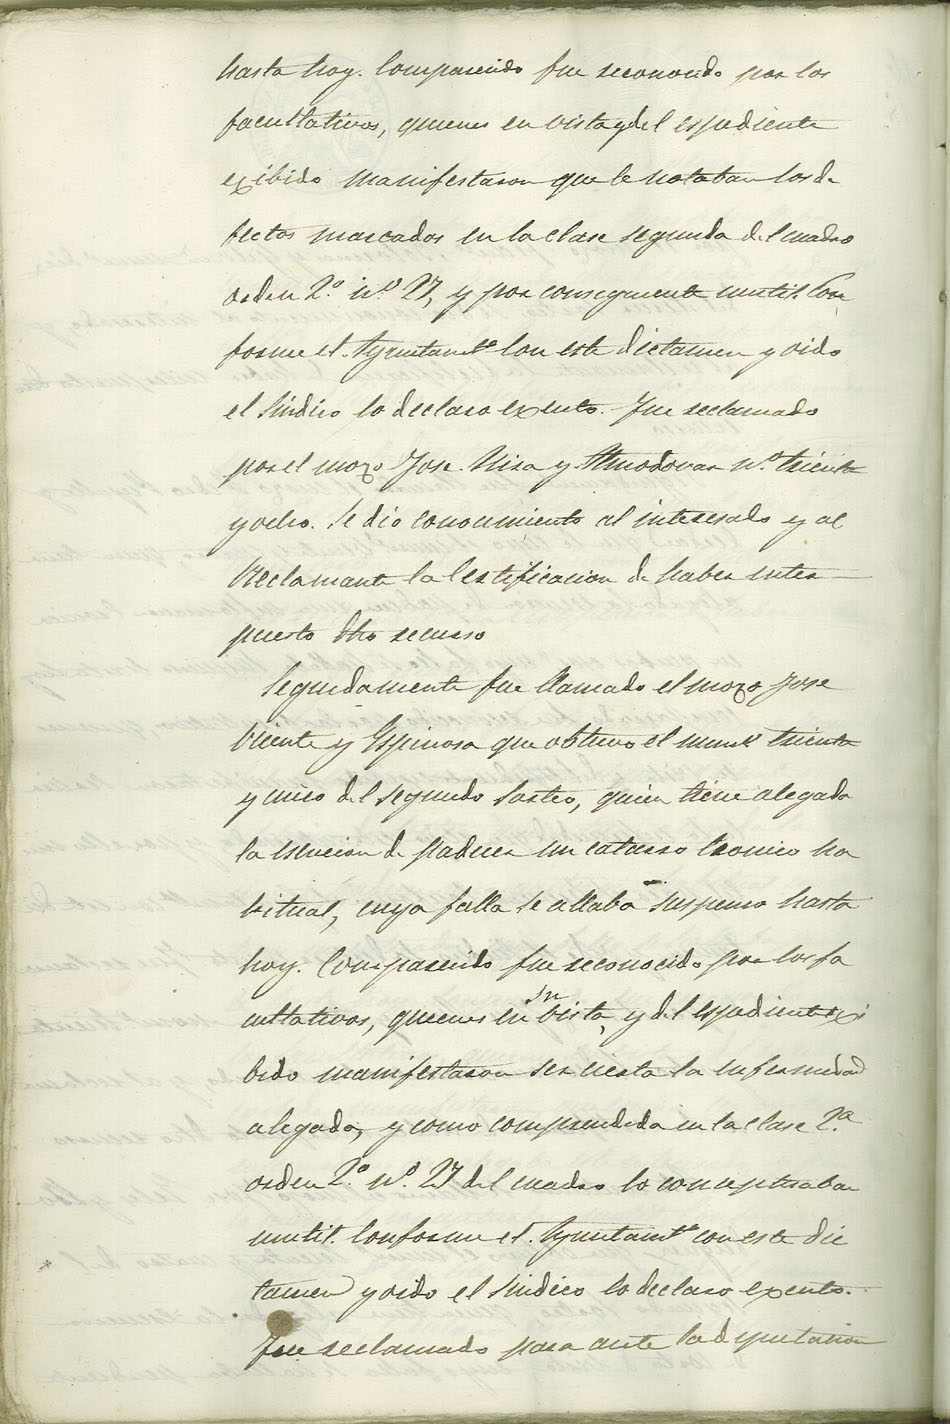 hasta hoy. Comparecido fue reconocido por los
facultativos, quienes en vista y del espediente
exibido manifestaron que le notaban los de
fectos marcados en la clase segunda del cuadro
orden 2.º nº 27, y por consiguiente inutil. Con
forme el Ayuntamtº con este dictamen y oido
el Sindico lo declaro exento. Fue reclamado
por el mozo Jose Nisa y Almodovar nº. treinta
y ocho. Se dio conocimiento al interesado y al
reclamante la Certificacion de haber inter
puesto dho recurso
Seguidamente fue llamado el mozo Jose
Vicente y Espinosa que obtuvo el numº treinta
y cinco del segundo sorteo, quien tiene alegada
la escucion de padecer un catarro cronico ha
vitual, cuya falla se allaba suspensa hasta
hoy. Comparecido fue reconocido por los fa
cultativos, quienes en su vista, y del espediente exi
bido manifestaron ser cierta la enfermedad
alegada, y como comprendida en la clase 2.ª
orden 2.º nº. 27 del cuadro lo conceptuaban
inutil. Conforme el Ayuntamtº con este dic
tamen y oido el Sindico lo declaro exento.
Fue reclamado para ante la diputacion